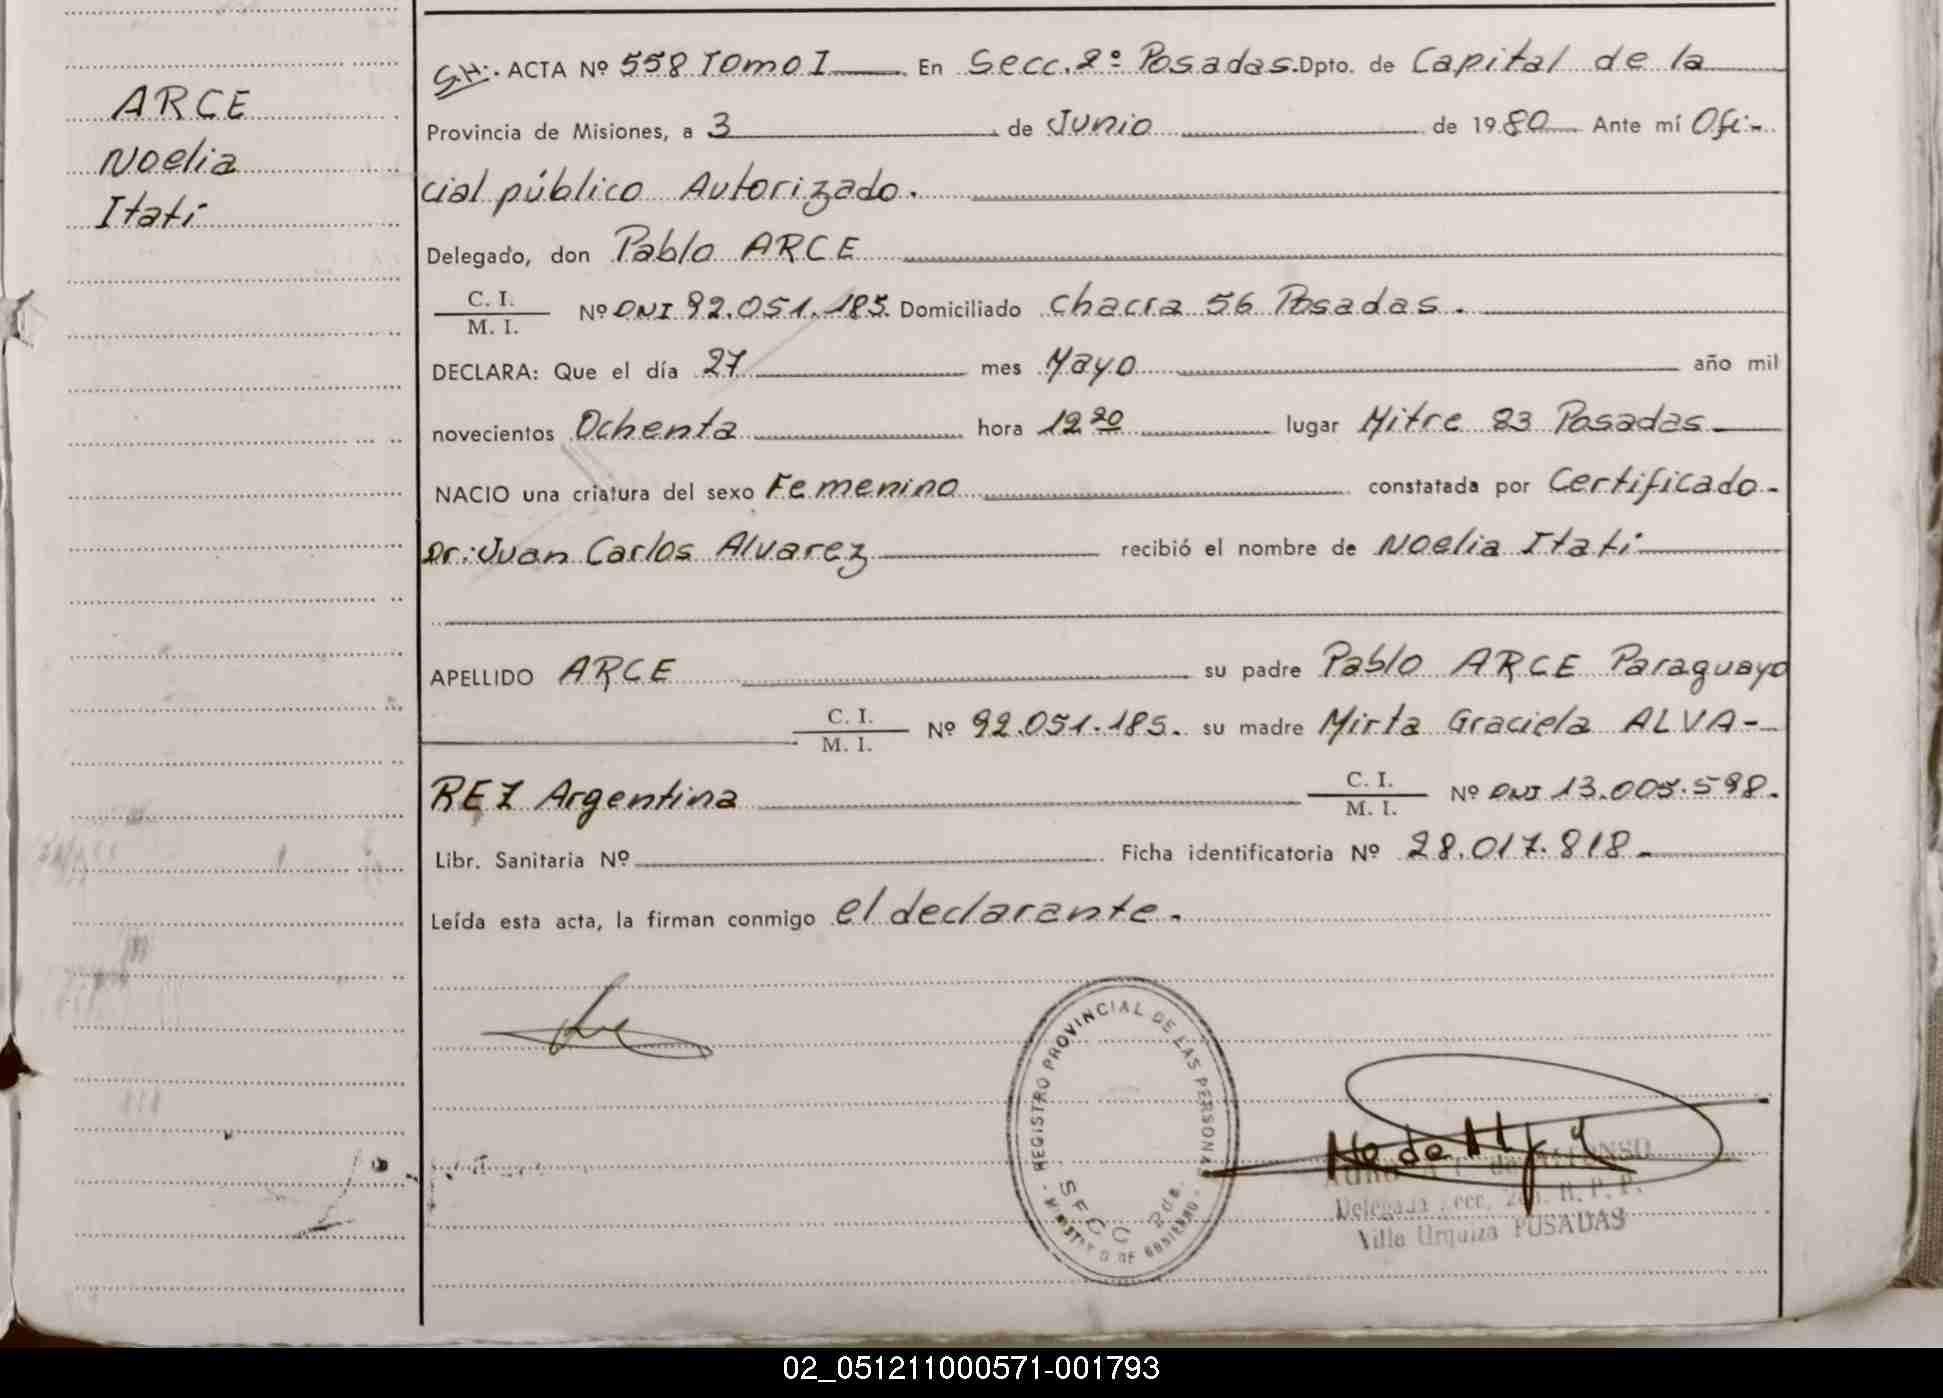 ARCE
Noelia
Itatí
S.H. ACTA Nº 558 Tomo I En Secc. 2º Posadas. Dpto. de Capital de la
Provincia de Misiones, a 3 de Junio de 1980 Ante mí Ofi-
cial público Autorizado.
Delegado, don Pablo ARCE
C. I.
M. I. Nº DNI 92.051.185. Domiciliado Chacra 56 Posadas.
DECLARA: Que el día 27 mes Mayo año mil
novecientos Ochenta hora 12 20 lugar Mitre 83 Posadas
NACIO una criatura del sexo Femenino constatada por Certificado-
Dr: Juan Carlos Alvarez recibió el nombre de Noelia Itatí
APELLIDO ARCE su padre Pablo ARCE Paraguayo
C. I.
M. I. Nº 92.051.185. su madre Mirta Graciela ALVA-
REZ Argentina C. I.
M. I. Nº DNI 13.005.598.
Libr. Sanitaria Nº Ficha identificatoria Nº 28.017.818-
Leída esta acta, la firman conmigo el declarante.
REGISTRO PROVINCIAL DE LAS PERSONAS
SECC 2da.
MINISTERIO DE GOBIERNO
de ALFONSO
Delegada Secc. 2da. R. P. P.
Villa Urquiza POSADAS
02_051211000571-001793